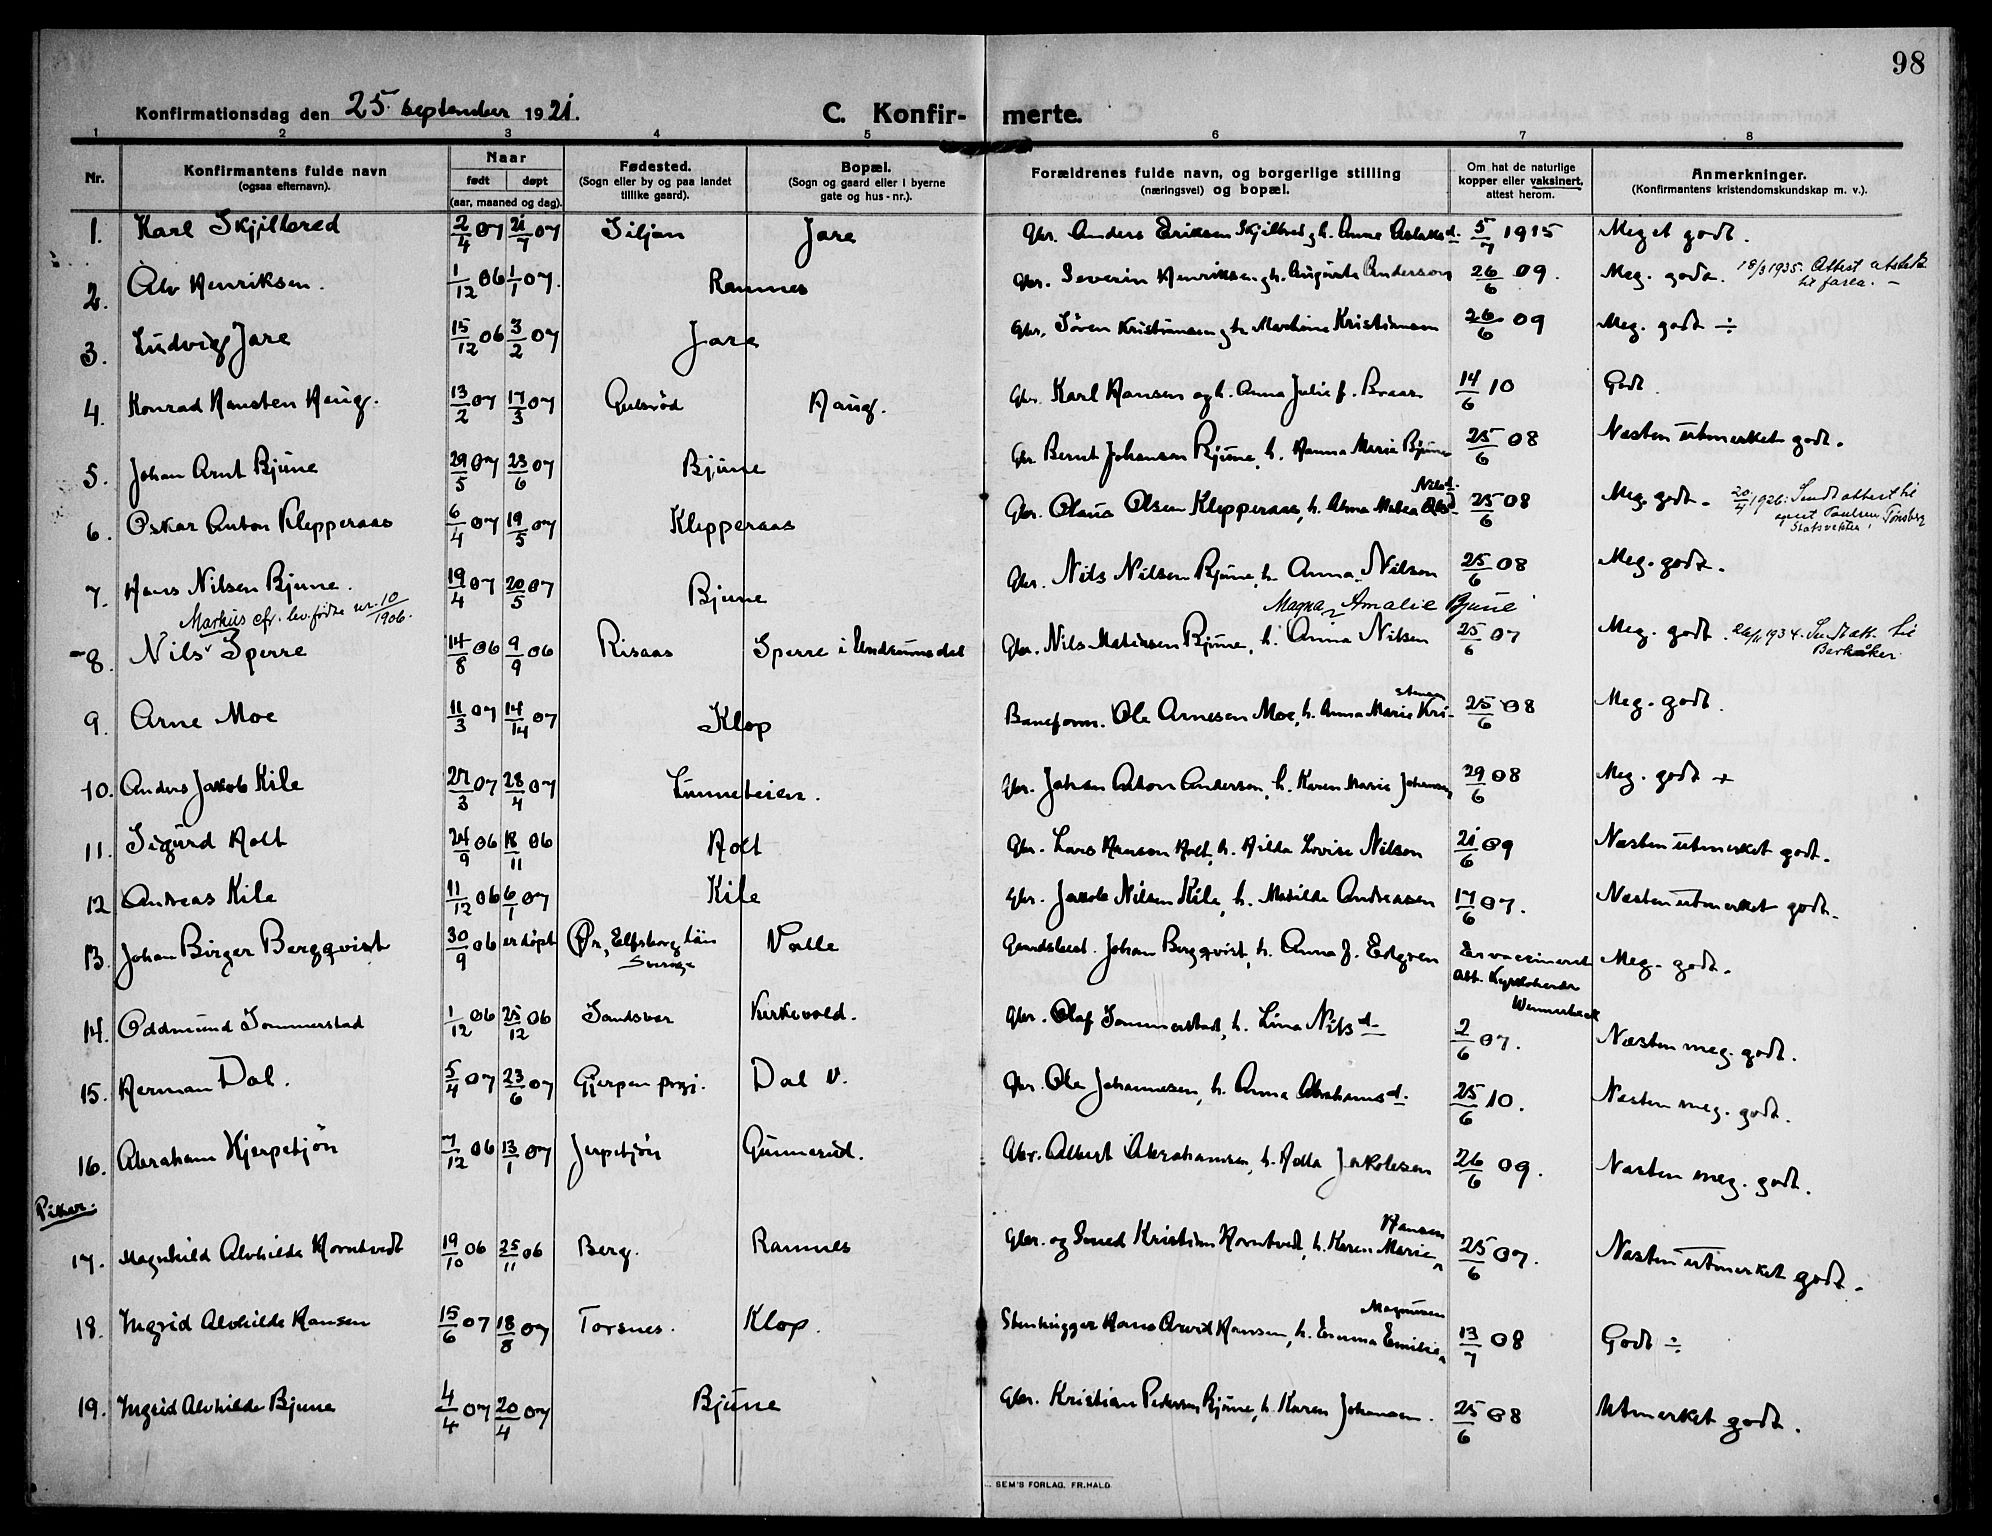 98
Konfirmationsdag den 25 september 1921. C. Konfir- merte.
1 2 3 4 5 6 7 8
Nr. Konfirmantens fulde navn (ogsaa efternavn). Naar født døpt (aar, maaned og dag). Fødested. (Sogn eller by og paa landet tillike gaard). Bopæl. (Sogn og gaard eller i byerne gate og hus-nr.). Forældrenes fulde navn, og borgerlige stilling (næringsvei) og bopæl. Om hat de naturlige kopper eller vaksinert, attest herom. Anmerkninger. (Konfirmantens kristendomskundskap m. v.).
1. Karl Skjilbred 2/4 07 21/7 07 Siljan Jare Gbr. Anders Eriksen Skjilbred, h. Anne Aslaksd. 5/7 1915 Meget godt.
2. Alv Henriksen. 1/12 06 1/1 07. Ramnes Gbr. Severin Henriksen, h. Augusta Anderson 26/6 09. Meg. godt. 18/3 1935: Attest utstedt
3. Ludvig Jare 15/12 06 3/2 07 Jare Gbr. Søren Kristiansen og h. Martine Kristiansen 26/6 09 Meg. godt ÷
4. Konrad Hansten Haug. 13/2 07 17/3 07 Gulsrød Haug. Gbr. Karl Hansen og h. Anna Julie f. Braar 14/6 10 Godt.
5. Johan Arnt Bjune 29/5 07 23/6 07 Bjune Gbr. Bernt Johansen Bjune, h. Hanna Marie Bjune 25/6 08 Næsten utmerket godt.
6. Oskar Anton Klepperaas 6/4 07 19/5 07 Klepperaas Gbr. Olaus Olsen Klepperaas, h. Anna Matea Nilsd. 25/6 08 Meg. godt. 20/4 1926: Sendt attest til Paulsen Tønsberg
7. Hans Nilsen Bjune. 19/4 07 20/5 07 Bjune Gbr. Nils Nilsen Bjune, h. Anna Nilsen 25/6 08 Meg. godt.
Markus cfr. lev. fødte nr. 10/1906. Magna Amalie Bjune
8. Nils Sperre 14/8 06 9/9 06 Risaas Sperre i Undrumsdal Gbr. Nils Matissen Bjune, h. Anna Nilsen 25/6 07 Meg. godt. 26/1 1934. Sendt att. til Berkåker
9. Arne Moe 11/3 07 14/14 07 Klop Baneform. Ole Arnesen Moe, h. Anna Marie Kristensen 25/6 08 Meg. godt.
10. Anders Jakob Kile 27/3 07 28/4 07 Linneteien. Gbr. Johan Anton Anderson, h. Karen Marie Johansen 29/6 08 Meg. godt +
11. Sigurd Holt 24/9 06 18/11 06 Holt Gbr. Lars Hansen Holt, h. Hilda Lovise Nilsen 21/6 09 Næsten utmerket godt.
12 Andreas Kile 11/12 06 6/1 07 Kile Gbr. Jakob Nilsen Kile, h. Matilde Andreassen 17/6 07. Næsten utmerket godt.
13. Johan Birger Bergqvist 30/9 06 er døpt Ør, Elfsborg län Sverige Valle Gaardsbest. Johan Bergqvist, h. Anna f. Edgren Er vaccineret att. Kyrkoherde Wennerbeck Meg. godt.
14. Oddmund Sommerstad 1/12 06 25/12 06 Sandsvær Kirkevold. Gbr. Olaf Sommerstad, h. Lina Nilsd. 2/6 07. Næsten meg. godt.
15. Herman Dal. 5/4 07 23/6 07 Gjerpen prgj. Dal V. Gbr. Ole Johannesen, h. Anna Abrahamsd. 25/6 10. Næsten meg. godt.
16. Abraham Hjerpetjøn 7/12 06 13/1 07 Jerpetjøn Gunnerød. Gbr. Albert Abrahamsen, h. Hella Jakobsen 26/6 09. Næsten meg. godt.
Piker.
17. Magnhild Alvhilde Horntvedt 19/10 06 25/11 06 Berg. Ramnes Gbr. og Smed Kristian Horntvedt, h. Karen Marie Hansen 25/6 07. Næsten utmerket godt.
18. Ingrid Alvhilde Hansen 15/6 07 18/8 07 Torsnes. Klop. Stenhugger Hans Arvid Hansen, h. Emma Emilie Magnussen 13/7 08 Godt ÷
19. Ingrid Alvhilde Bjune 4/4 07 20/4 07 Bjune Gbr. Kristian Pedersen Bjune, h. Karen Johansen. 25/6 08 Utmerket godt.
SEM'S FORLAG, FR.HALD